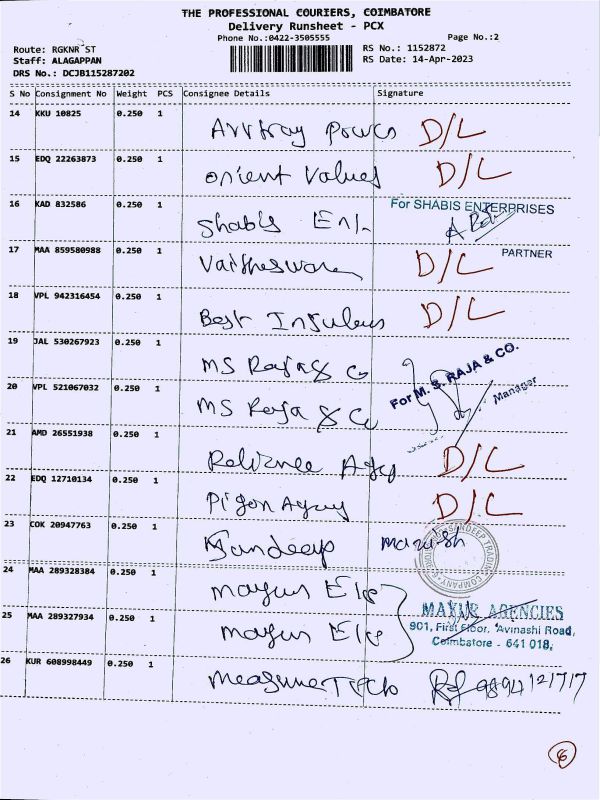 THE PROFESSIONAL COURIERS, COIMBATORE
Delivery Runsheet - PCX
Phone No.:0422-3505555
Page No.:2
Route: RGKNR ST
RS No.: 1152872
Staff: ALAGAPPAN
RS Date: 14-Apr-2023
DRS No.: DCJB115287202
S No Consignment No Weight PCS Consignee Details Signature
14 KKU 10825 0.250 1
D/L
15 EDQ 22263873 0.250 1
orient Values D/L
16 KAD 832586 0.250 1
For SHABIS ENTERPRISES
Shabis Ent.
PARTNER
17 MAA 859580988 0.250 1
D/L
18 VPL 942316454 0.250 1
Best D/L
19 JAL 530267923 0.250 1
MS Raja & Co
For M. S. RAJA & CO.
20 VPL 521067032 0.250 1
MS Raja & Co
Manager
21 AMD 26551938 0.250 1
D/L
22 EDQ 12710134 0.250 1
D/L
23 COK 20947763 0.250 1
Sandeep manish
SANDEEP TRADING COMPANY
24 MAA 289328384 0.250 1
mayur Ele
25 MAA 289327934 0.250 1
mayur Ele
MAYUR AGENCIES
901, First Floor, Avinashi Road,
Coimbatore - 641 018,
26 KUR 608998449 0.250 1
6